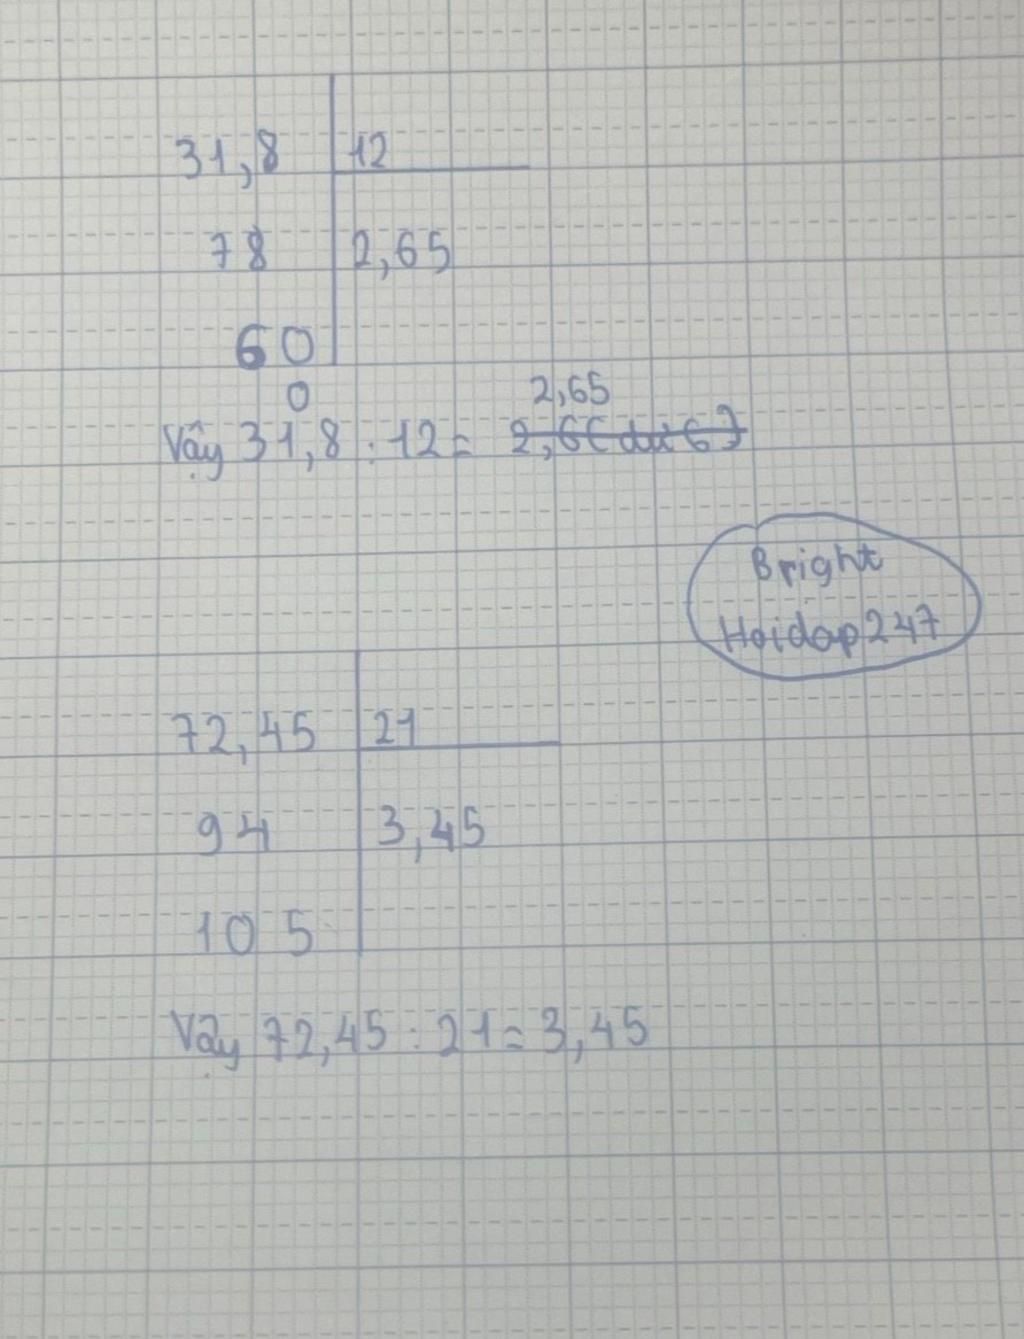 31,8 12
78 2,65
60
0
2,65
Vậy 31,8 : 12 = 2,6 ( dư 6 )
Bright
Hoidap247
72,45 21
94 3,45
10 5
Vậy 72,45 : 21 = 3,45